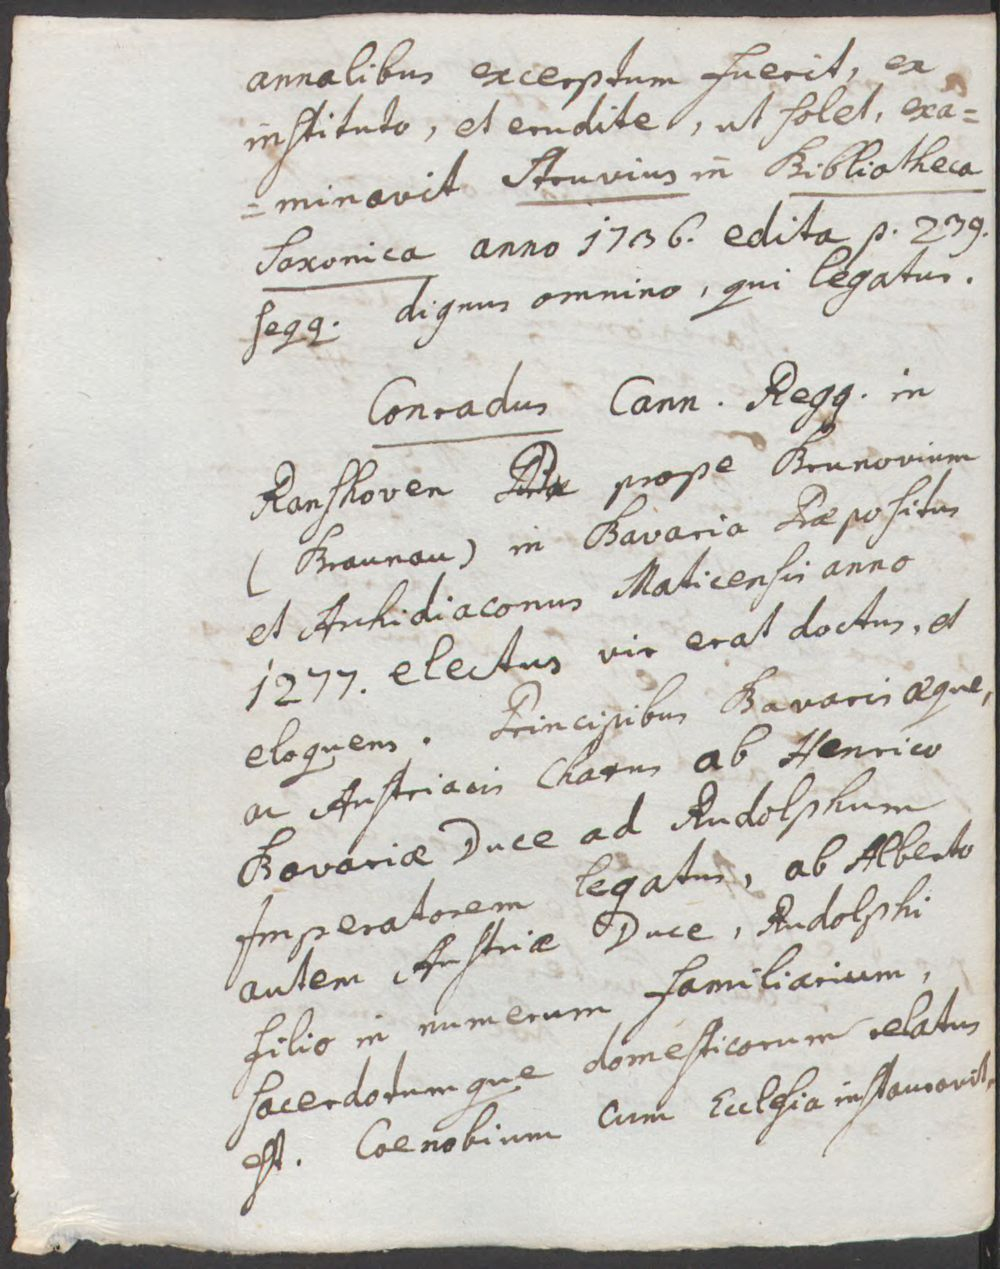 annalibus excerptum fuerit, ex
instituto, et erudite, ut solet, exa=
=minavit Struvius in Bibliotheca
Saxonica anno 1736. edita p. 239.
seqq. dignus omnino, qui legatur.
Conradus Cann. Regg. in
Ranshoven prope Brunovium
(Braunau) in Bavaria Præpositus
et Archidiaconus Maticensis anno
1277. electus vir erat doctus, et
eloquens. Principibus Bavaris æque,
ac Austriacis Charus ab Henrico
Bavariæ Duce ad Rudolphum
Imperatorem legatus, ab Alberto
autem Austriæ Duce, Rudolphi
filio in numerum familiarium,
sacerdotumque domesticorum relatus
est. Coenobium cum Ecclesia instauravit,